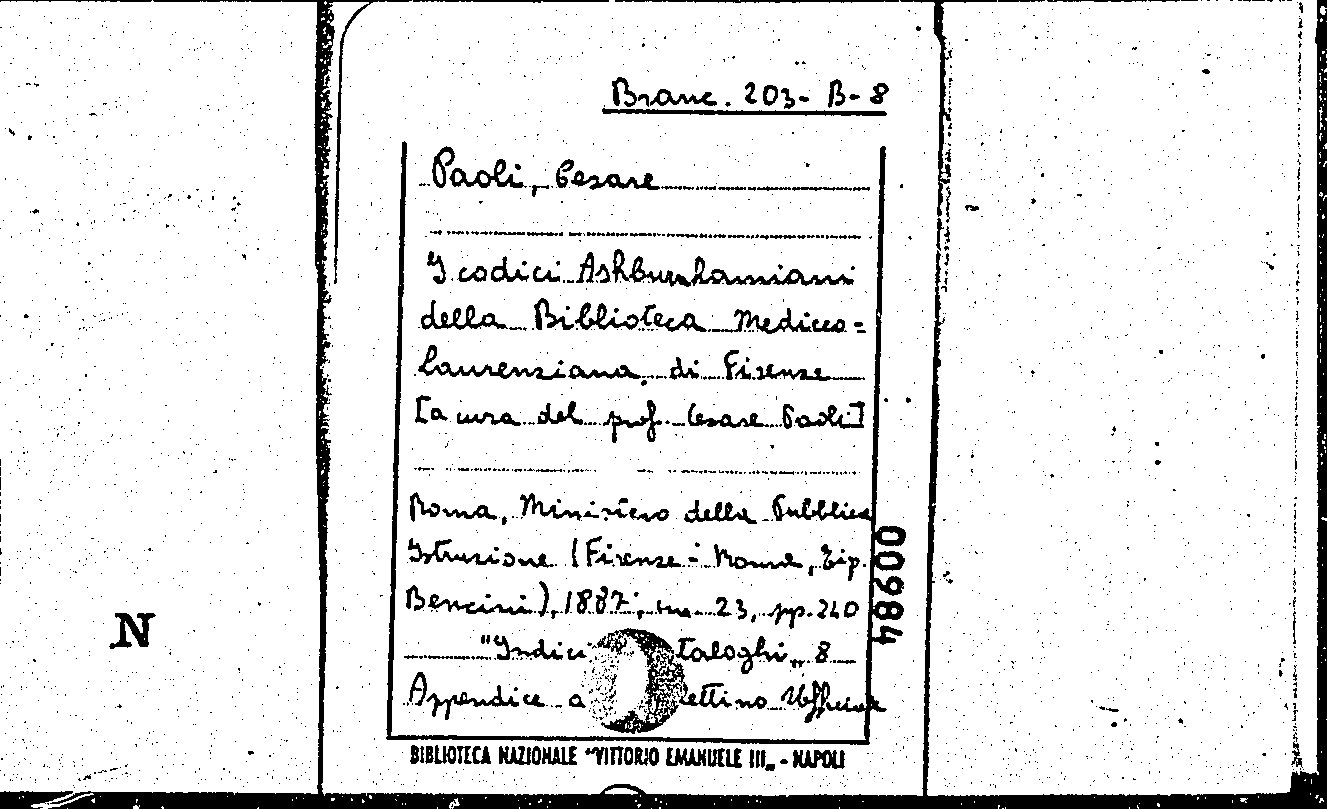 Branc. 203-B-8
Paoli, Cesare
I codici Ashburnhamiani
della Biblioteca Mediceo=
Laurenziana di Firenze
[a cura del prof. Cesare Paoli]
Roma, Ministero della Pubblica
Istruzione (Firenze-Roma, Tip.
Bencini), 1887, cm. 23, pp. 240
"Indici taloghi„ 8
Appendice a lettino Ufficiale
00984
N
BIBLIOTECA NAZIONALE "VITTORIO EMANUELE III„ - NAPOLI